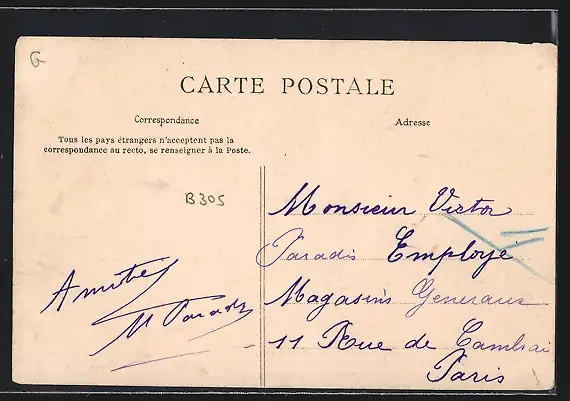 G
CARTE POSTALE
Correspondance
Adresse
Tous les pays étrangers n'acceptent pas la
correspondance au recto, se renseigner à la Poste.
B305
Monsieur Victor
Paradis Employé
Magasins Generaux
11 Rue de Cambrai
Paris
Amitiés
M Paradis